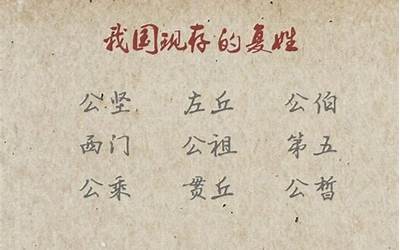 我国现存的复姓
公坚 左丘 公伯
西门 公祖 第五
公乘 贯丘 公皙